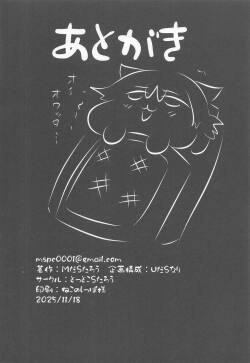 あとがき
オ…
オワッタ…
msne0001@gmail.com
著作：Mだらたろう 企画構成：Uだらなり
サークル：とっとこらたろう
印刷：ねこのしっぽ様
2025/11/18